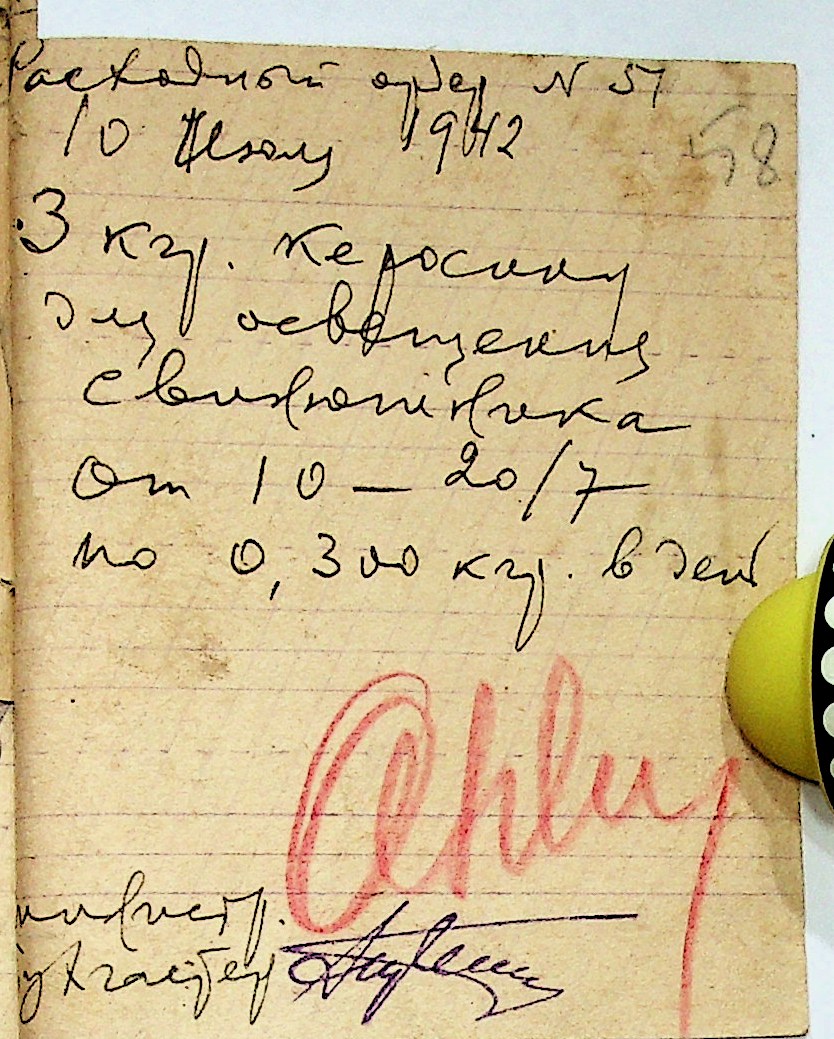 Расходный ордер N 51
10 Июля 1942
58
3 кгр. керосину
для освещения
свинюшника
от 10 — 20/7
по 0,300 кгр. в день
министр.
бухгалтер